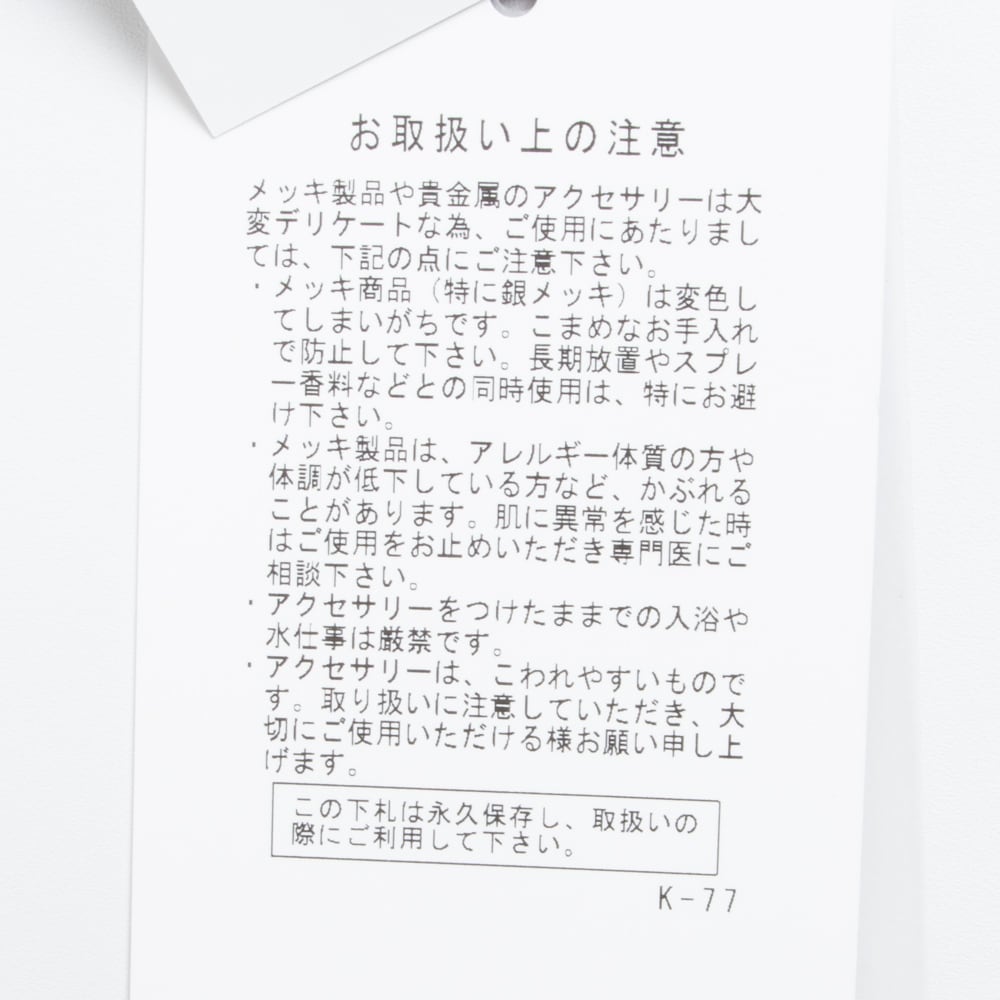 お取扱い上の注意
メッキ製品や貴金属のアクセサリーは大
変デリケートな為、ご使用にあたりまし
ては、下記の点にご注意下さい。
・メッキ商品（特に銀メッキ）は変色し
てしまいがちです。こまめなお手入れ
で防止して下さい。長期放置やスプレ
ー香料などとの同時使用は、特にお避
け下さい。
・メッキ製品は、アレルギー体質の方や
体調が低下している方など、かぶれる
ことがあります。肌に異常を感じた時
はご使用をお止めいただき専門医にご
相談下さい。
・アクセサリーをつけたままでの入浴や
水仕事は厳禁です。
・アクセサリーは、こわれやすいもので
す。取り扱いに注意していただき、大
切にご使用いただける様お願い申し上
げます。
この下札は永久保存し、取扱いの
際にご利用して下さい。
K-77